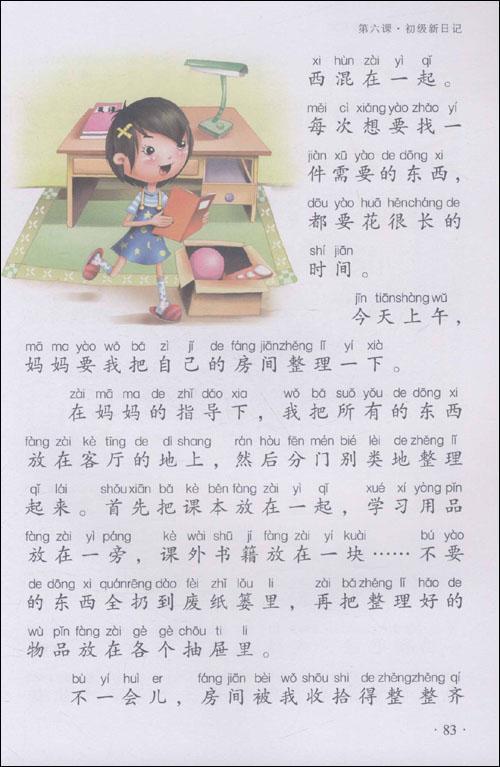 第六课·初级新日记
xi hùn zài yì qǐ
西混在一起。
měi cì xiǎng yào zhǎo yí
每次想要找一
jiàn xū yào de dōng xi
件需要的东西，
dōu yào huā hěn cháng de
都要花很长的
shí jiān
时间。
jīn tiān shàng wǔ
今天上午，
mā ma yào wǒ bǎ zì jǐ de fáng jiān zhěng lǐ yí xià
妈妈要我把自己的房间整理一下。
zài mā ma de zhǐ dǎo xia wǒ bǎ suǒ yǒu de dōng xi
在妈妈的指导下，我把所有的东西
fàng zài kè tīng de dì shang rán hòu fēn mén bié lèi de zhěng lǐ
放在客厅的地上，然后分门别类地整理
qǐ lái shǒu xiān bǎ kè běn fàng zài yì qǐ xué xí yòng pǐn
起来。首先把课本放在一起，学习用品
fàng zài yì páng kè wài shū jí fàng zài yí kuài bú yào
放在一旁，课外书籍放在一块……不要
de dōng xi quán rēng dào fèi zhǐ lǒu li zài bǎ zhěng lǐ hǎo de
的东西全扔到废纸篓里，再把整理好的
wù pǐn fàng zài gè gè chōu ti li
物品放在各个抽屉里。
bù yí huì er fáng jiān bèi wǒ shōu shi de zhěng zhěng qí
不一会儿，房间被我收拾得整整齐
·83·